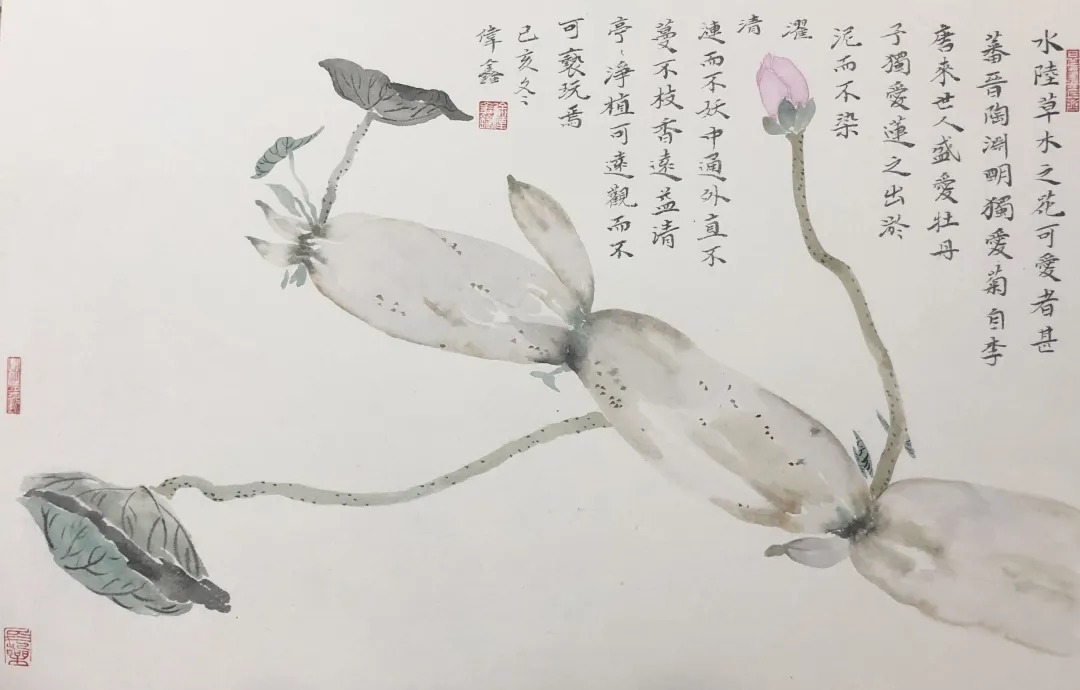 水陸草木之花可愛者甚
蕃晋陶淵明獨愛菊自李
唐來世人盛愛牡丹
子獨愛蓮之出於
泥而不染
濯
清
漣而不妖中通外直不
蔓不枝香遠益清
亭〻淨植可遠觀而不
可褻玩焉
己亥冬
偉鑫